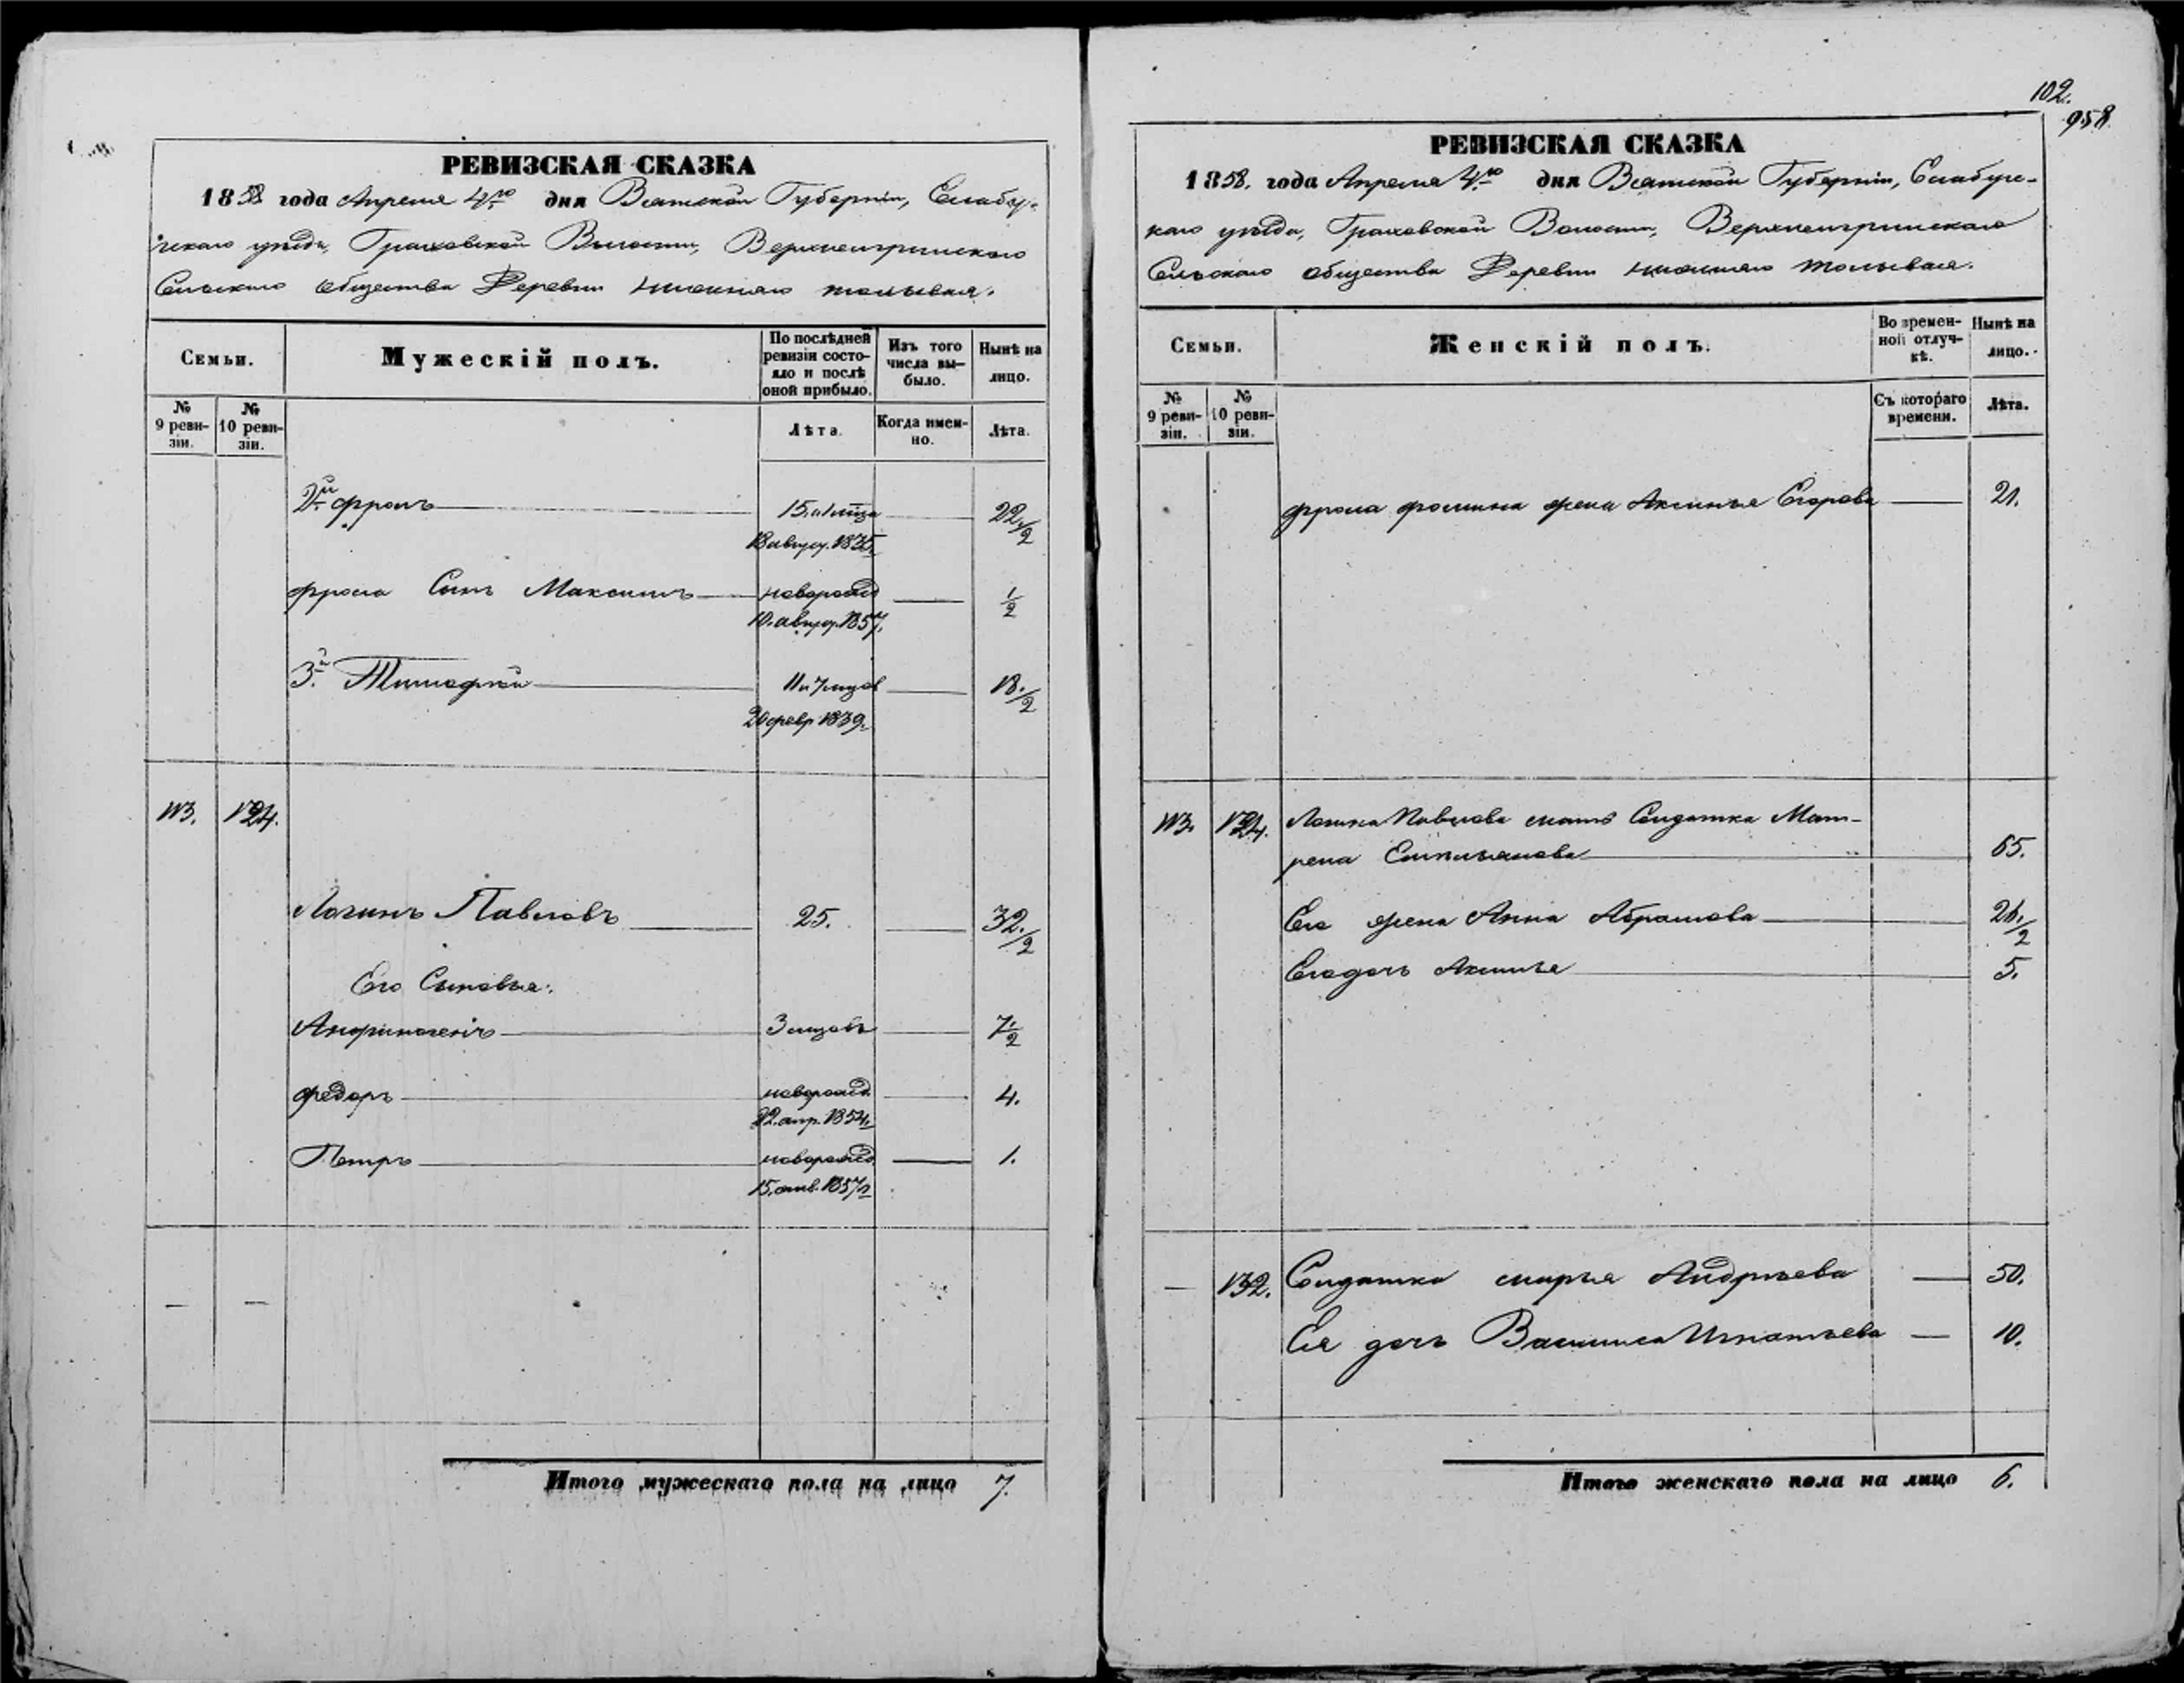 РЕВИЗСКАЯ СКАЗКА
1858 года Апреля 4го дня Вятской Губерніи, Елабу-
жскаго уѣзда, Граховской Волости, Верхнеигринскаго
Сельскаго общества Деревни Нижняго
Семьи.
Мужескій полъ.
По послѣдней ревизіи состояло и послѣ оной прибыло.
Изъ того числа вы-было.
Нынѣ на лицо.
№ 9 реви-зіи.
№ 10 реви-зіи.
Лѣта.
Когда имен-но.
Лѣта.
2й Фролъ 22 1/2
18 август. 1835.
Фрола Сынъ Максимъ новорожд 1/2
10. август. 1857.
3й Тимофей 11 и 7 мцов 18. 1/2
20 февр 1839.
113. 124.
Логинъ Павловъ 25. 32. 1/2
Его Сыновья:
Анфиногенъ 3 мцовъ 7 1/2
Федоръ новорожд. 4.
22. апр. 1854.
Петръ новорожд. 1.
15. 1857
— —
Итого мужескаго пола на лицо 7.
102.
958
РЕВИЗСКАЯ СКАЗКА
1858. года Апреля 4го дня Вятской Губерніи, Елабужс-
каго уѣзда, Граховской Волости, Верхнеигринскаго
Сельскаго общества Деревни Нижняго
Семьи.
Женскій полъ.
Во времен-ной отлуч-кѣ.
Нынѣ на лицо.
№ 9 реви-зіи.
№ 10 реви-зіи.
Съ котораго времени.
Лѣта.
Фрола Фомина жена Аксинья Егорова 21.
113. 124. Логина Павлова мать Солдатка Мат-
рена Емельянова 65.
Его жена Анна Абрамова 1/2
Его дочь Аксинья 5.
— 132. Солдатка марья Андрѣева 50.
Ея дочь Василиса Игнатьева 10.
Итого женскаго пола на лицо 6.